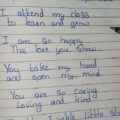 I attend my class
to learn and grow
I am so happy
The love you show.
You take my hand
and open my mind
You are so caring
Loving and kind
Twinkle little